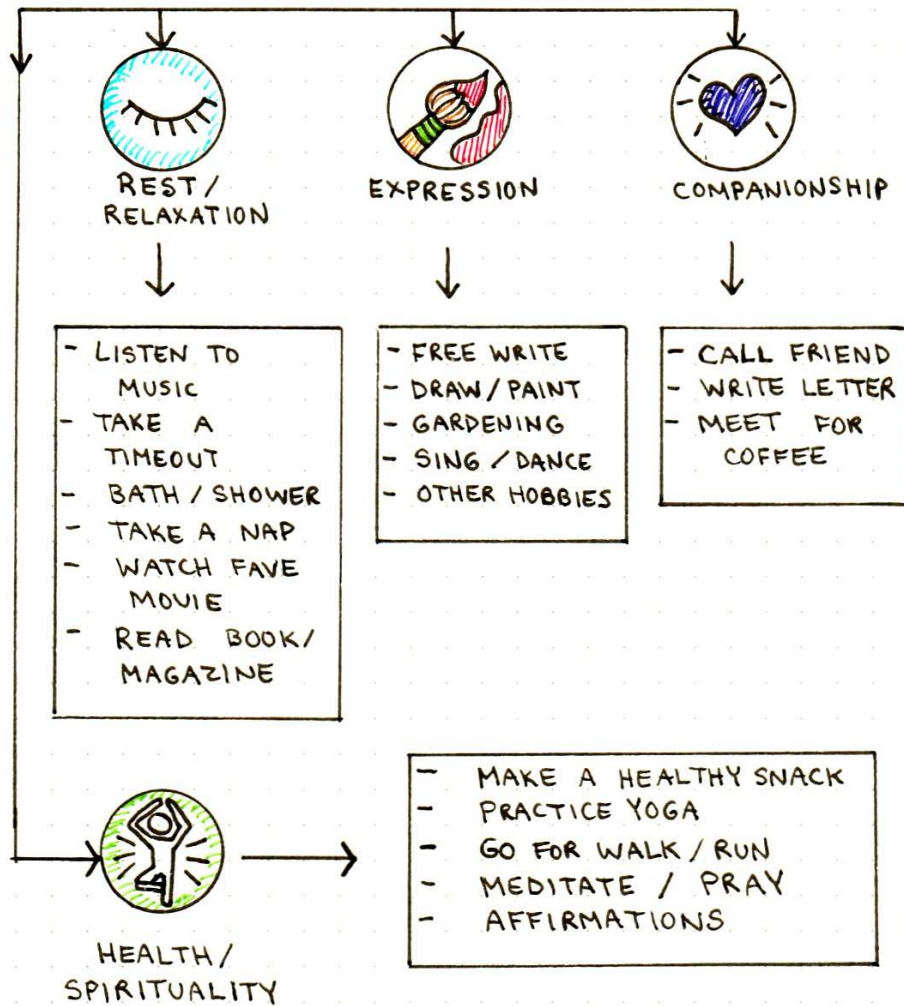 REST/
RELAXATION
EXPRESSION
COMPANIONSHIP
- LISTEN TO
MUSIC
- TAKE A
TIMEOUT
- BATH / SHOWER
- TAKE A NAP
- WATCH FAVE
MOVIE
- READ BOOK/
MAGAZINE
- FREE WRITE
- DRAW/PAINT
- GARDENING
- SING / DANCE
- OTHER HOBBIES
- CALL FRIEND
- WRITE LETTER
- MEET FOR
COFFEE
HEALTH/
SPIRITUALITY
- MAKE A HEALTHY SNACK
- PRACTICE YOGA
- GO FOR WALK / RUN
- MEDITATE / PRAY
- AFFIRMATIONS